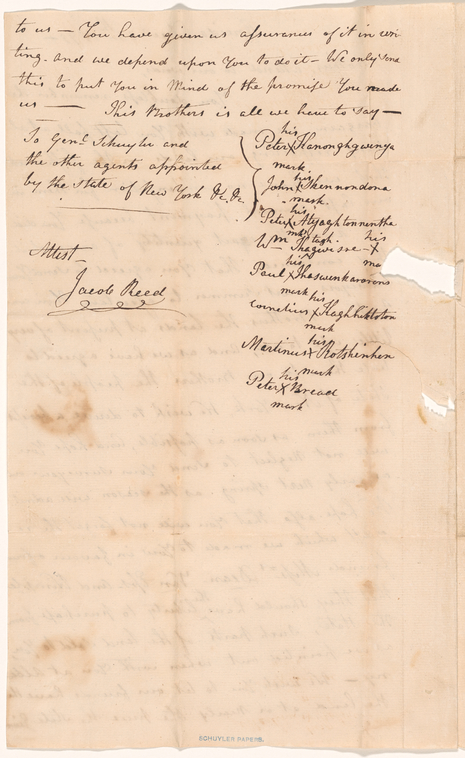 to us — You have given us assurances of it in wri
ting. and we depend upon You to do it — We only send
this to put You in Mind of the promise You made
us — This Brothers is all we have to say —
To Genl. Schuyler and
the other agents appointed
by the State of New York &c, &c.
his
Peter X Kanonghgwenya
mark
his
John X Skennondona
mark.
his
Peter X Atyaghtonnentha
mark
his
Wm X
Paul X
his
mark
his
Cornelius X
mark
his
Martinus X Rotshinhen
mark
his
Peter X Bread
mark
Attest —
Jacob Reed
SCHUYLER PAPERS.